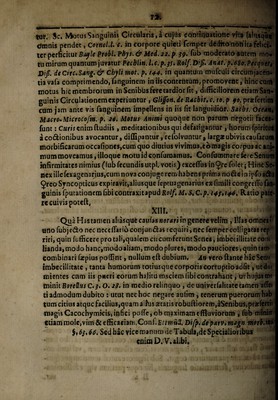 72.
tur. Sc. Motus Sanguinis Circularis, à cujus continuatione vita
omnis pendet, Cornel. l. c. in corpore quieti semper dedito non ita
ter perficitur Boyle Probl. Phys. & Med. 22. p. 39. sub moderato autem
in mirum quantum juvatur Pechlin. l. c. p. 31. Rolf. Diss. Anat. p.
Diss. de Circ. Sang. & Chyli mot. p. 144. in quantum musculi circumjacen-
tia vasa comprimendo, sanguinem in iis contentum, promovent, hinc cum
motus hic membrorum in Senibus fere tardior sit, difficiliorem etiam San-
guinis Circulationem experiuntur, Glisson. de Rachit. c. 12. p. 92. præsertim
cum jam ante vis sanguinem impellens in iis sit languidior. Sachs. Ocean.
Macro-Microcosm. p. 20. Motus Animi quoque non parum negotii faces-
sunt: Curis enim studiis, meditationibus qui defatigantur, horum spiritus
à coctionibus avocantur, dissipantur, resolvuntur, largè obvias causas
morbificarum occasiones, cum quo diutius vivimus, eò magis corpus ac ani-
mum movemus, illoque motu id consumimus. Consummare fere Senum
infirmitates nimius (sub secundis utpl. votis) excessus in Qre solet; Hinc Se-
nex ille sexagenarius, cum nova conjuge rem habens prima nocte in ipso actu
Qreo Syncopticus expiravit, aliusque septuagenarius ex simili congressu san-
guinis sputationem sibi contraxit apud Rolf. M. S. C. p. 145. 146. Ratio pate-
re cuivis potest,
XIII.
Quâ Histamen abiásque causas notari in genere velim, illas omnes
uno subjecto nec necessariò conjunctas requiri, nec semper colligatas repe-
riri, quin sufficere pro tali, qualem circumferunt Senes, imbecillitate con-
lianda, modo hanc, modo aliam, modo plures, modo pauciores, quin imo
combinari sæpius posse, nullum est dubium. An vero stante hâc Senum
imbecillitate, tanta honorum totiusque corporis corruptio adsit, ut dor-
mientes cum iis pueri eorum halitu nocivo sibi contrahant, ut hujus no-
minit Borellus C. 3. O. 28. in medio relinquo, de universalitate tamen asser-
ti admodum dubito: utut nec hoc negare ausim, tenerum puerorum habi-
tum citius atque facilius, quam adultos aratis robustiorem, à Senibus, præsertim
magis Cacochymicis, infici posse, ob maximam effluviorum, sub minimâ
etiam mole, vim & efficaciam. Conf. Etemüll. Disp. de parv. magn. morb.
§. 65. 66. Sed hâc vice manum de Tabula, de Specialioribus
enim D. V. al. bi.